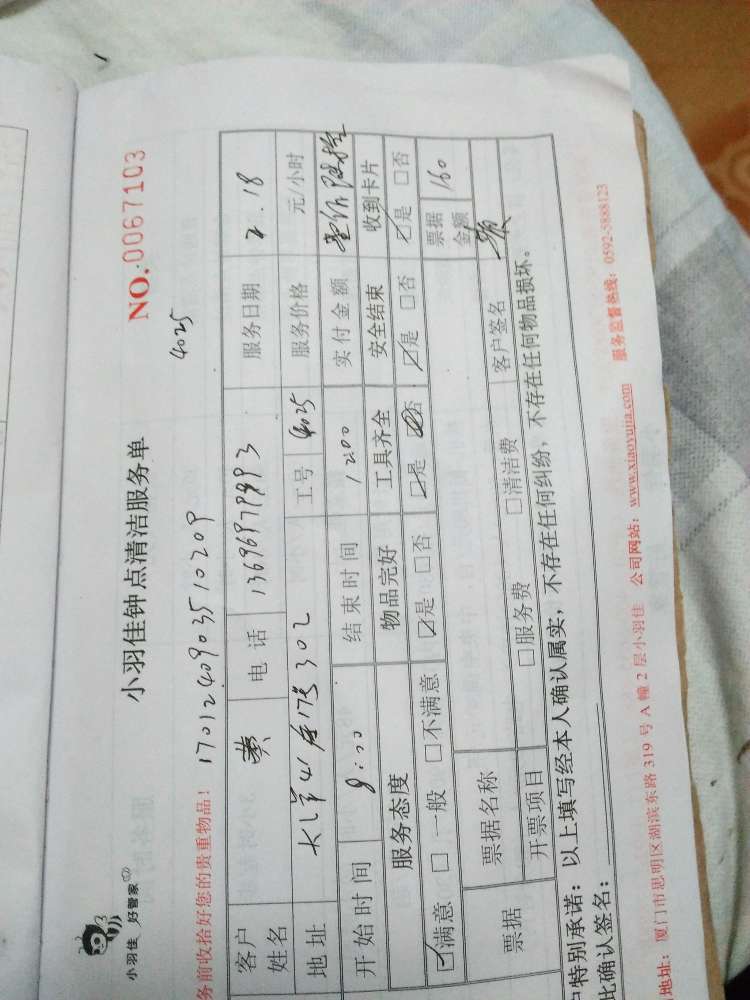 小羽佳 好管家
小羽佳钟点清洁服务单
NO.0067103
务前收拾好您的贵重物品!
1701240903510209
4025
客户姓名 黄 电话 服务日期 2.18
地址 302 工号 4025 服务价格 元/小时
开始时间 结束时间 12:00 实付金额
服务态度 物品完好 工具齐全 安全结束 收到卡片
☑满意 □一般 □不满意 ☑是 □否 ☑是 ☑否 ☑是 □否 ☑是 □否
票据 票据名称 票据金额 160
开票项目 □服务费 □清洁费 客户签名
户特别承诺:以上填写经本人确认属实,不存在任何纠纷,不存在任何物品损坏。
此确认签名:
地址:厦门市思明区湖滨东路 319 号 A 幢 2 层小羽佳 公司网站:www.xiaoyujia.com 服务监督热线:0592-5888123